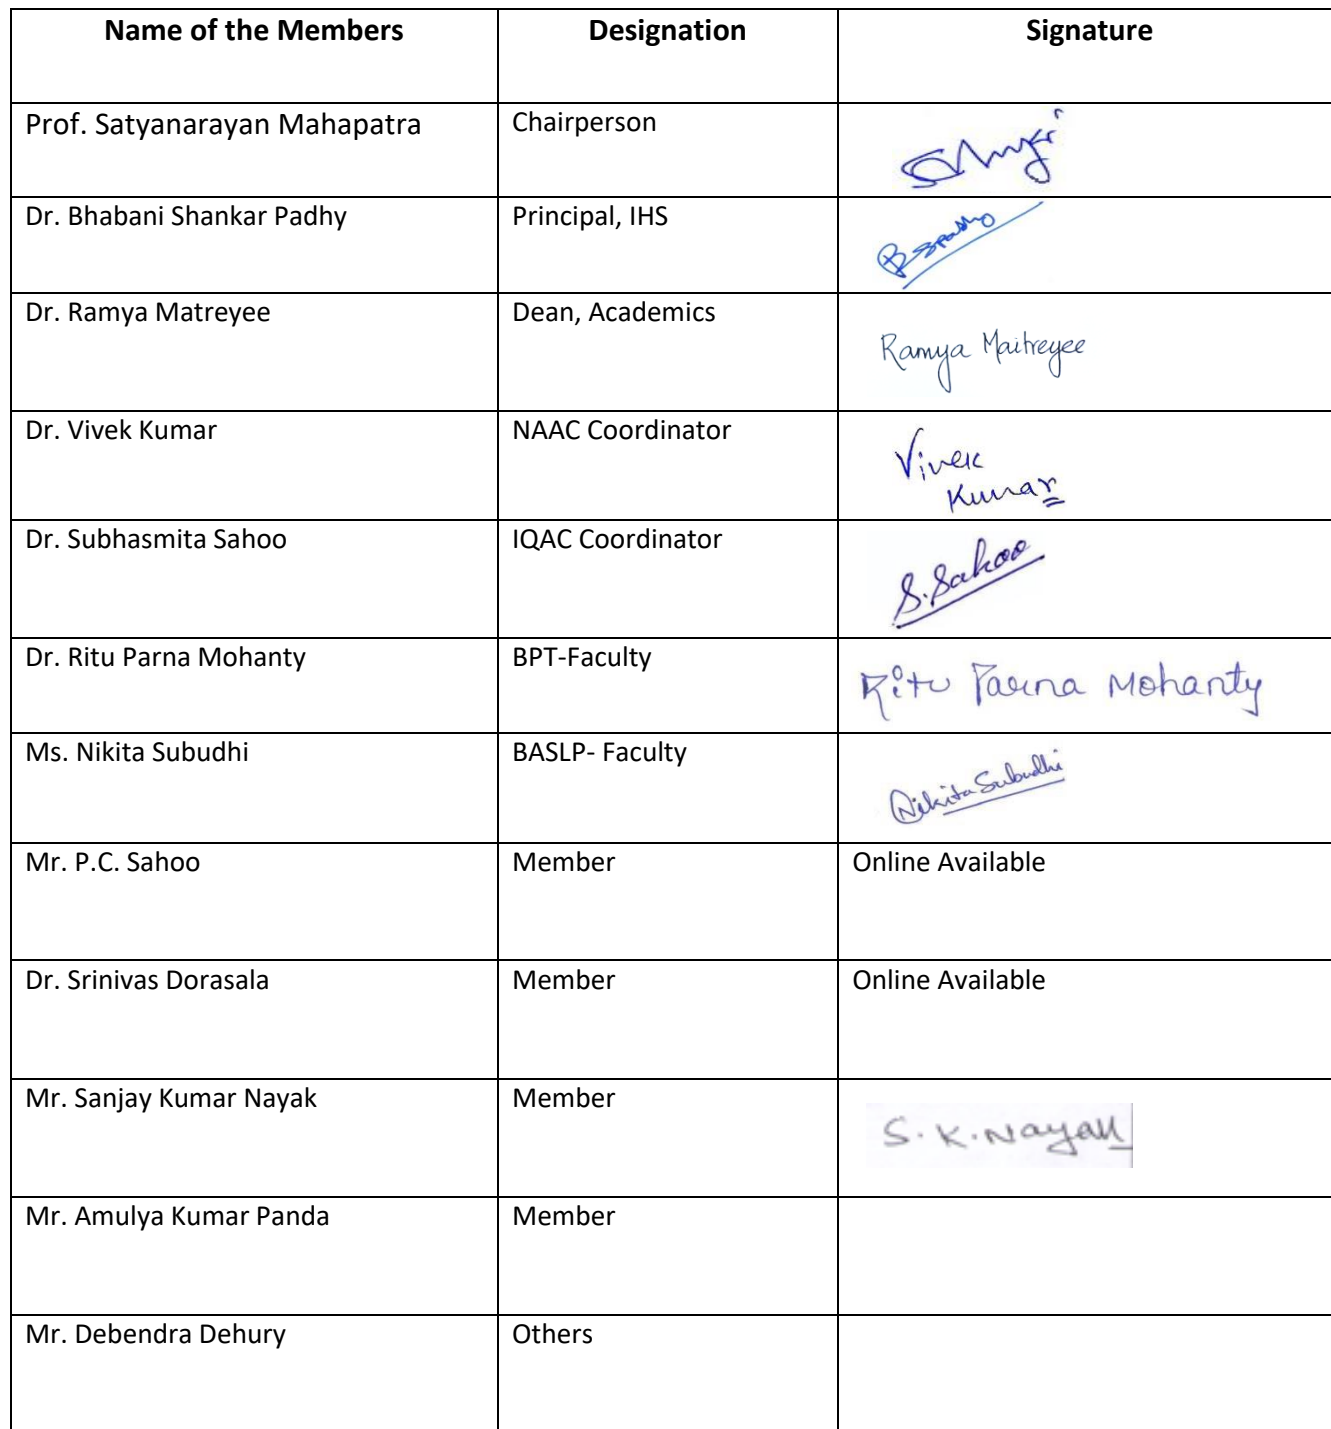 Name of the Members Designation Signature
Prof. Satyanarayan Mahapatra Chairperson
Dr. Bhabani Shankar Padhy Principal, IHS
Dr. Ramya Matreyee Dean, Academics
Ramya Maitreyee
Dr. Vivek Kumar NAAC Coordinator
Vivek
Kumar
Dr. Subhasmita Sahoo IQAC Coordinator
S. Sahoo
Dr. Ritu Parna Mohanty BPT-Faculty
Ritu Parna Mohanty
Ms. Nikita Subudhi BASLP- Faculty
Nikita Subudhi
Mr. P.C. Sahoo Member Online Available
Dr. Srinivas Dorasala Member Online Available
Mr. Sanjay Kumar Nayak Member
S. K. Nayak
Mr. Amulya Kumar Panda Member
Mr. Debendra Dehury Others